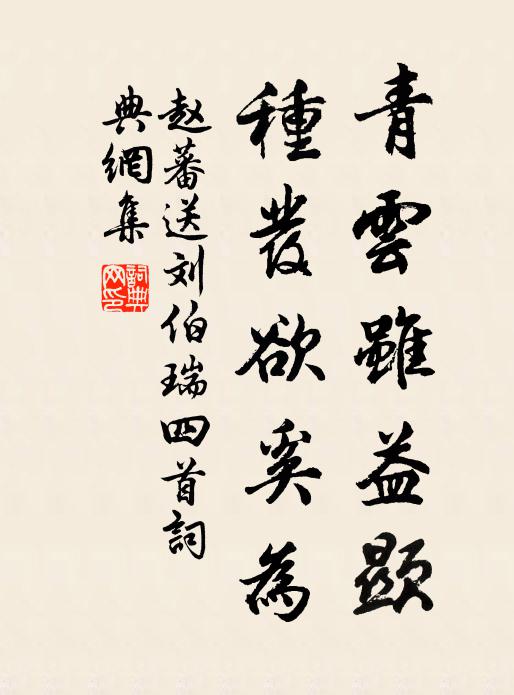 青雲雖益顯
種髮欲奚為
赵蕃送刘伯瑞四首詞
典網集
詞典
网印